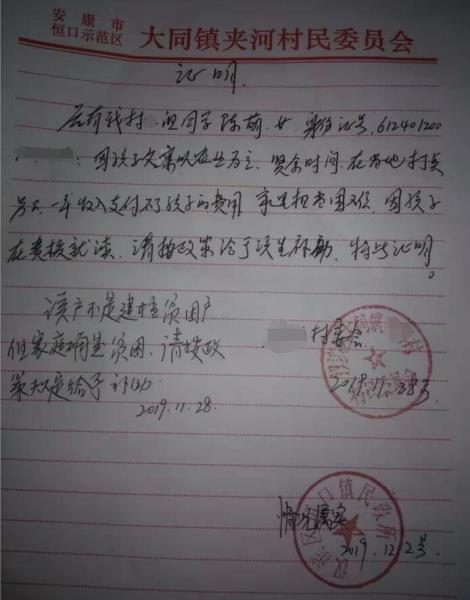 安康市
恒口示范区 大同镇夹河村民委员会
证明
兹有我村 组同学陈萌,女,身份证号,612401200
因孩子父亲以农业为主,其余时间在当地打点
一年收入支付不了孩子的费用 家里相当困难,因孩子
在贵校就读,请按政策给予该生补助,特此证明。
该户不是建档贫困户
但家庭确是贫困,请按政
策规定给予
2019.11.28.
村委会
2019.11.28号
情况属实
2019.12.2号